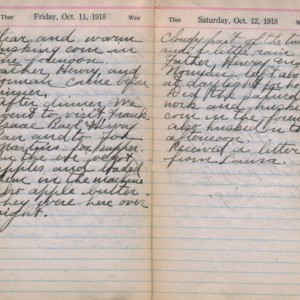 Ther Friday, Oct. 11, 1918
Clear and warm
husking corn in
the forenoon.
Father Henry and
women came for
dinner.
After dinner We
went to visit Frank
Isaac Bert Henry
and
for supper.
In the eve we got
apples and loaded
them in the machine
for apple butter.
They were here over
night.
Ther Saturday, Oct. 12, 1918
Cloudy part of the time
and a little
Father, Henry and
Women left about
at daylight for home
Did the
work and husked
corn in the forenoon
also husked in the
afternoon.
Received a letter
from Laura.